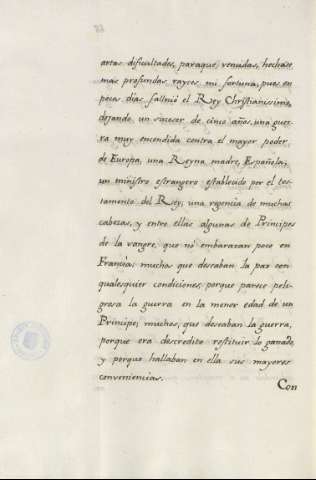 artas dificultades, paraque, vencidas, hechase
mas profundas rayces mi fortuna, pues en
pocos dias fallecio el Rey Christianissimo,
dejando un sucesor de cinco años, una guer-
ra muy encendida contra el mayor poder
de Europa, una Reyna madre, Española;
un ministro estrangero establecido por el tes-
tamento del Rey; una regencia de muchas
cabezas, y entre ellas algunas de Principes
de la sangre, que no embarazan poco en
Francia; muchos que deseaban la paz con
qualesquier condiciones, porque parece peli-
grosa la guerra en la menor edad de un
Principe; muchos, que deseaban la guerra,
porque era descredito restituir lo ganado,
y porque hallaban en ella sus mayores
conveniencias.
Con